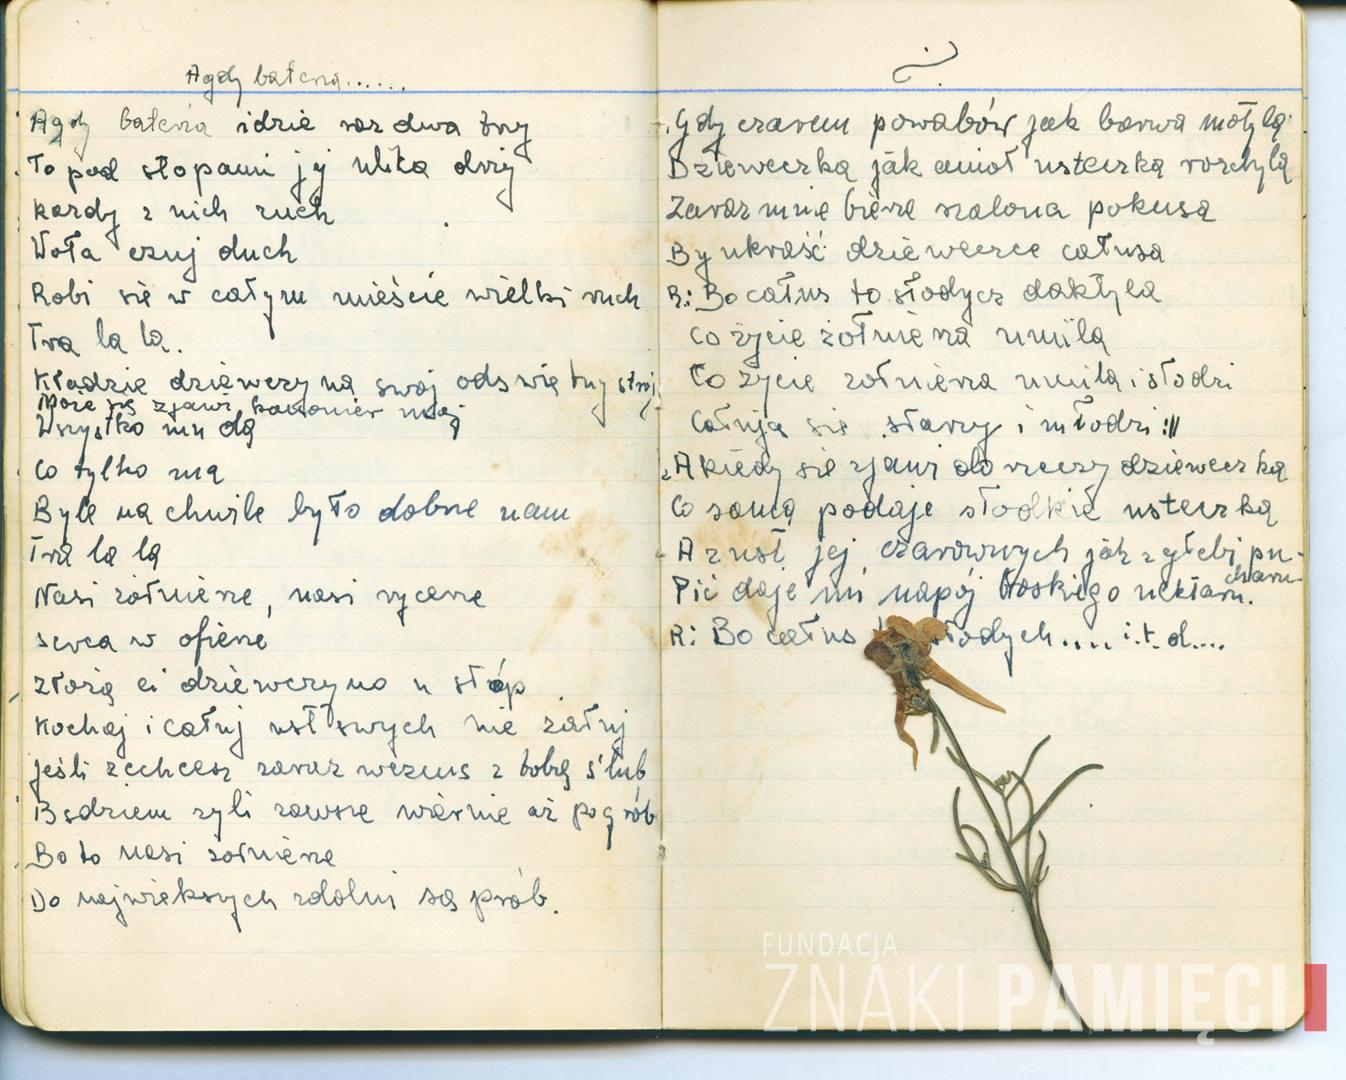 A gdy bateria......
A gdy bateria idzie raz dwa trzy
To pod stopami jej ulica drży
Każdy z nich zuch
Woła czuj duch
Robi się w całym mieście wielki ruch
Tra la la.
Kładzie dziewczyna swój odświętny strój
Może się zjawi kanonier mój
Wszystko mu da
Co tylko ma
Byle na chwile było dobrze nam
Tra la la
Nasi żołnierze, nasi rycerze
serca w ofierze
złożą ci dziewczyno u stóp
Kochaj i całuj ust swych nie żałuj
Jeśli zechcesz zaraz wezmę z tobą ślub
Będziem żyli zawsze wiernie aż po grób
Bo to nasi żołnierze
Do największych zdolni są prób.
?
1. Gdy czarem powabów jak barwa motyla
Dzieweczka jak anioł usteczka rozchyla
Zaraz mnie bierze szalona pokusa
By ukraść dzieweczce całusa
R: Bo całus to słodycz daktyla
Co życie żołnierza umila
Co życie żołnierza umila i słodzi
Całują się starzy i młodzi :||
2. A kiedy się zjawi do rzeczy dzieweczka
Co sama podaje słodkie usteczka
A z ust jej czarownych jak z głębi pu-
charu
Pić daje mi napój boskiego nektaru.
R: Bo całus to słodych.... i.t.d....
FUNDACJA
ZNAKI PAMIĘCI